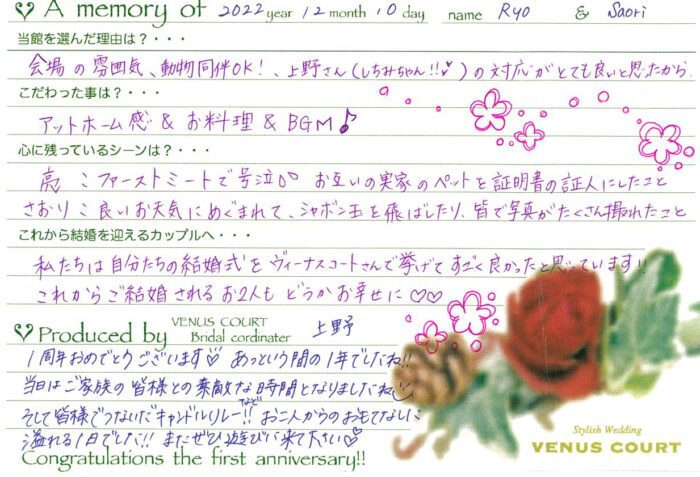 A memory of 2022 year 12 month 10 day name Ryo & Saori
当館を選んだ理由は？・・・
会場の雰囲気、動物同伴OK！、上野さん(しちみちゃん!!♡)の対応がとても良いと思ったから.
こだわった事は？・・・
アットホーム感 & お料理 & BGM♪
心に残っているシーンは？・・・
亮：ファーストミートで号泣 お互いの実家のペットを証明書の証人にしたこと
さおり：良いお天気にめぐまれて、シャボン玉を飛ばしたり、皆で写真がたくさん撮れたこと
これから結婚を迎えるカップルへ・・・
私たちは自分たちの結婚式をヴィーナスコートさんで挙げてすごく良かったと思っています!!
これからご結婚されるお2人も どうかお幸せに♡♡
Produced by VENUS COURT Bridal cordinater 上野
1周年おめでとうございます♡ あっという間の1年でしたね!!
当日はご家族の皆様との素敵な時間となりましたね
そして皆様でつないだキャンドルリレー!!など お二人からのおもてなしに
溢れる1日でした!! またぜひ遊びに来て下さい♡
Congratulations the first anniversary!!
Stylish Wedding
VENUS COURT